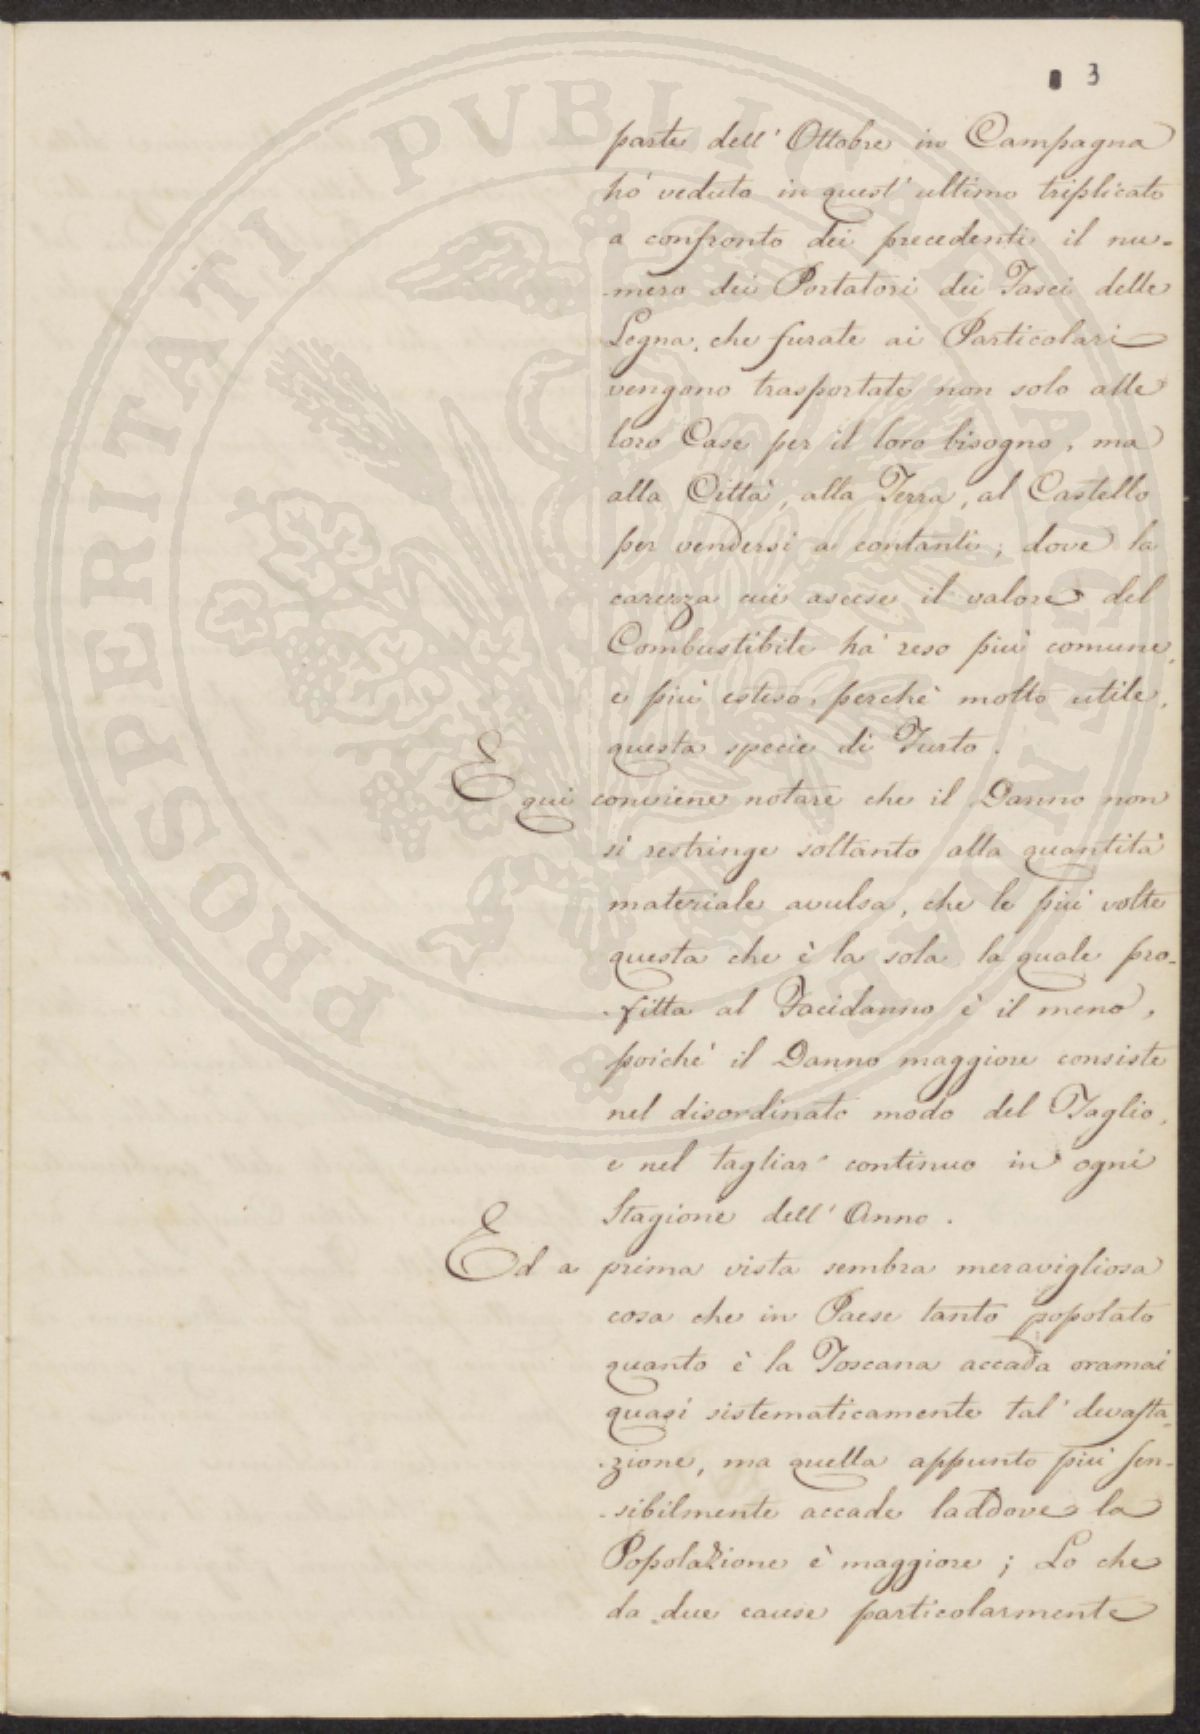 3
parte dell' Ottobre in Campagna
hò veduto in quest' ultimo triplicato
a confronto dei precedenti il nu=
=mero dei Portatori dei Fasci delle
Legna, che furate ai Particolari
vengono trasportate non solo alle
loro Case per il loro bisogno, ma
alla Città, alla Terra, al Castello
per vendersi a contanti; dove la
carezza cui ascese il valore del
Combustibile hà reso più comune,
e più esteso, perchè molto utile,
questa specie di Furto.
E qui conviene notare che il Danno non
si restringe soltanto alla quantità
materiale avulsa, che le più volte
questa che è la sola la quale pro=
=fitta al Facidanno è il meno,
poichè il Danno maggiore consiste
nel disordinato modo del Taglio,
e nel tagliar' continuo in ogni
Stagione dell' Anno.
Ed a prima vista sembra meravigliosa
cosa che in Paese tanto popolato
quanto è la Toscana accada oramai
quasi sistematicamente tal' devasta=
=zione, ma quella appunto più sen=
=sibilmente accade laddove la
Popolazione è maggiore; Lo che
da due cause particolarmente
PROSPERITATI PVBLICAE AVGENDAE